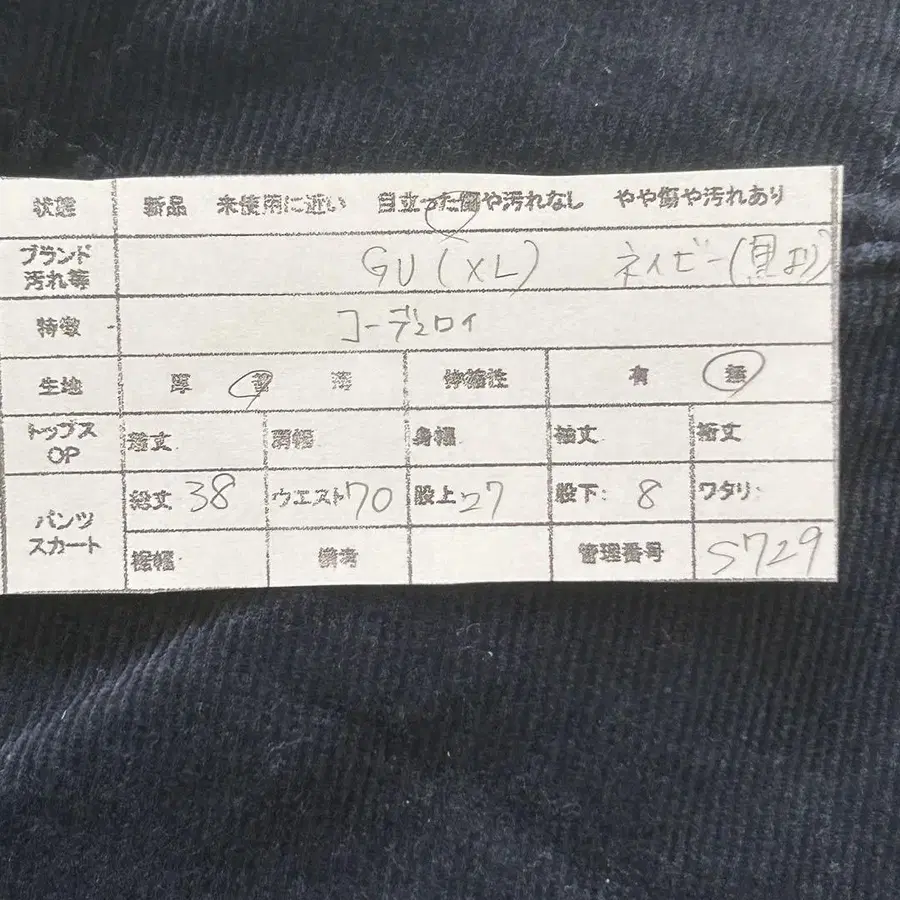 状態 新品 未使用に近い 目立った傷や汚れなし やや傷や汚れあり
ブランド 汚れ等 GU(XL) ネイビー(黒より)
特徴 コーデュロイ
生地 厚 普 薄 伸縮性 有 無
トップス OP 着丈 肩幅 身幅 袖丈 裄丈
パンツ スカート 総丈 38 ウエスト 70 股上 27 股下: 8 ワタリ:
裾幅 備考 管理番号 S729